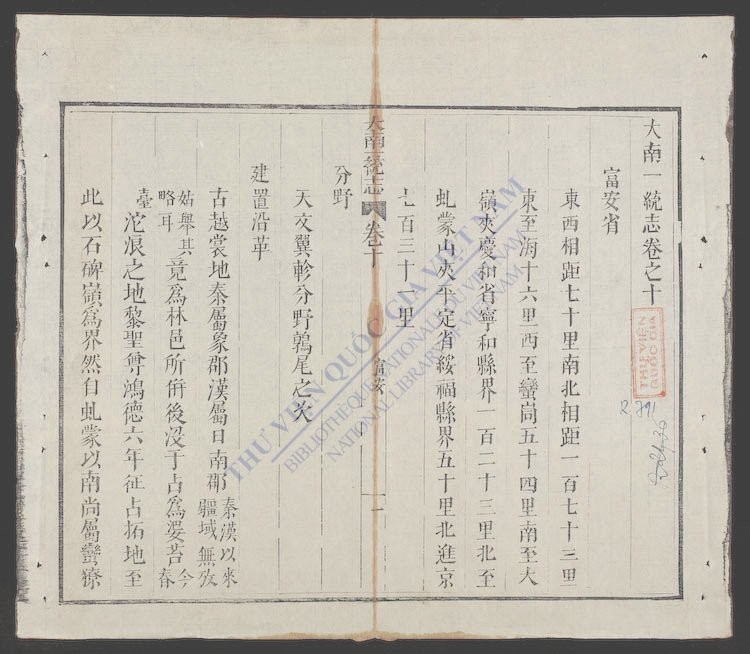 大南一統志卷之十
富安省
東西相距七十里南北相距一百七十三里
東至海十六里西至蠻峝五十四里南至大
嶺夾慶和省寧和縣界一百二十三里北至
虬蒙山夾平定省綏福縣界五十里北進京
七百三十一里
分野
天文翼軫分野鶉尾之次
建置沿革
古越裳地秦屬象郡漢屬日南郡秦漢以來疆域無攷
姑舉其略耳竟爲林邑所併後没于占爲婆苔今春
臺沱浪之地黎聖尊鴻德六年征占拓地至
此以石碑嶺爲界然自虬蒙以南尚屬蠻獠
大南一統志 卷十 富安 一
THƯ VIỆN QUỐC GIA VIỆT NAM
BIBLIOTHÈQUE NATIONALE DU VIETNAM
NATIONAL LIBRARY OF VIETNAM
THƯ VIỆN
QUỐC GIA
R.791